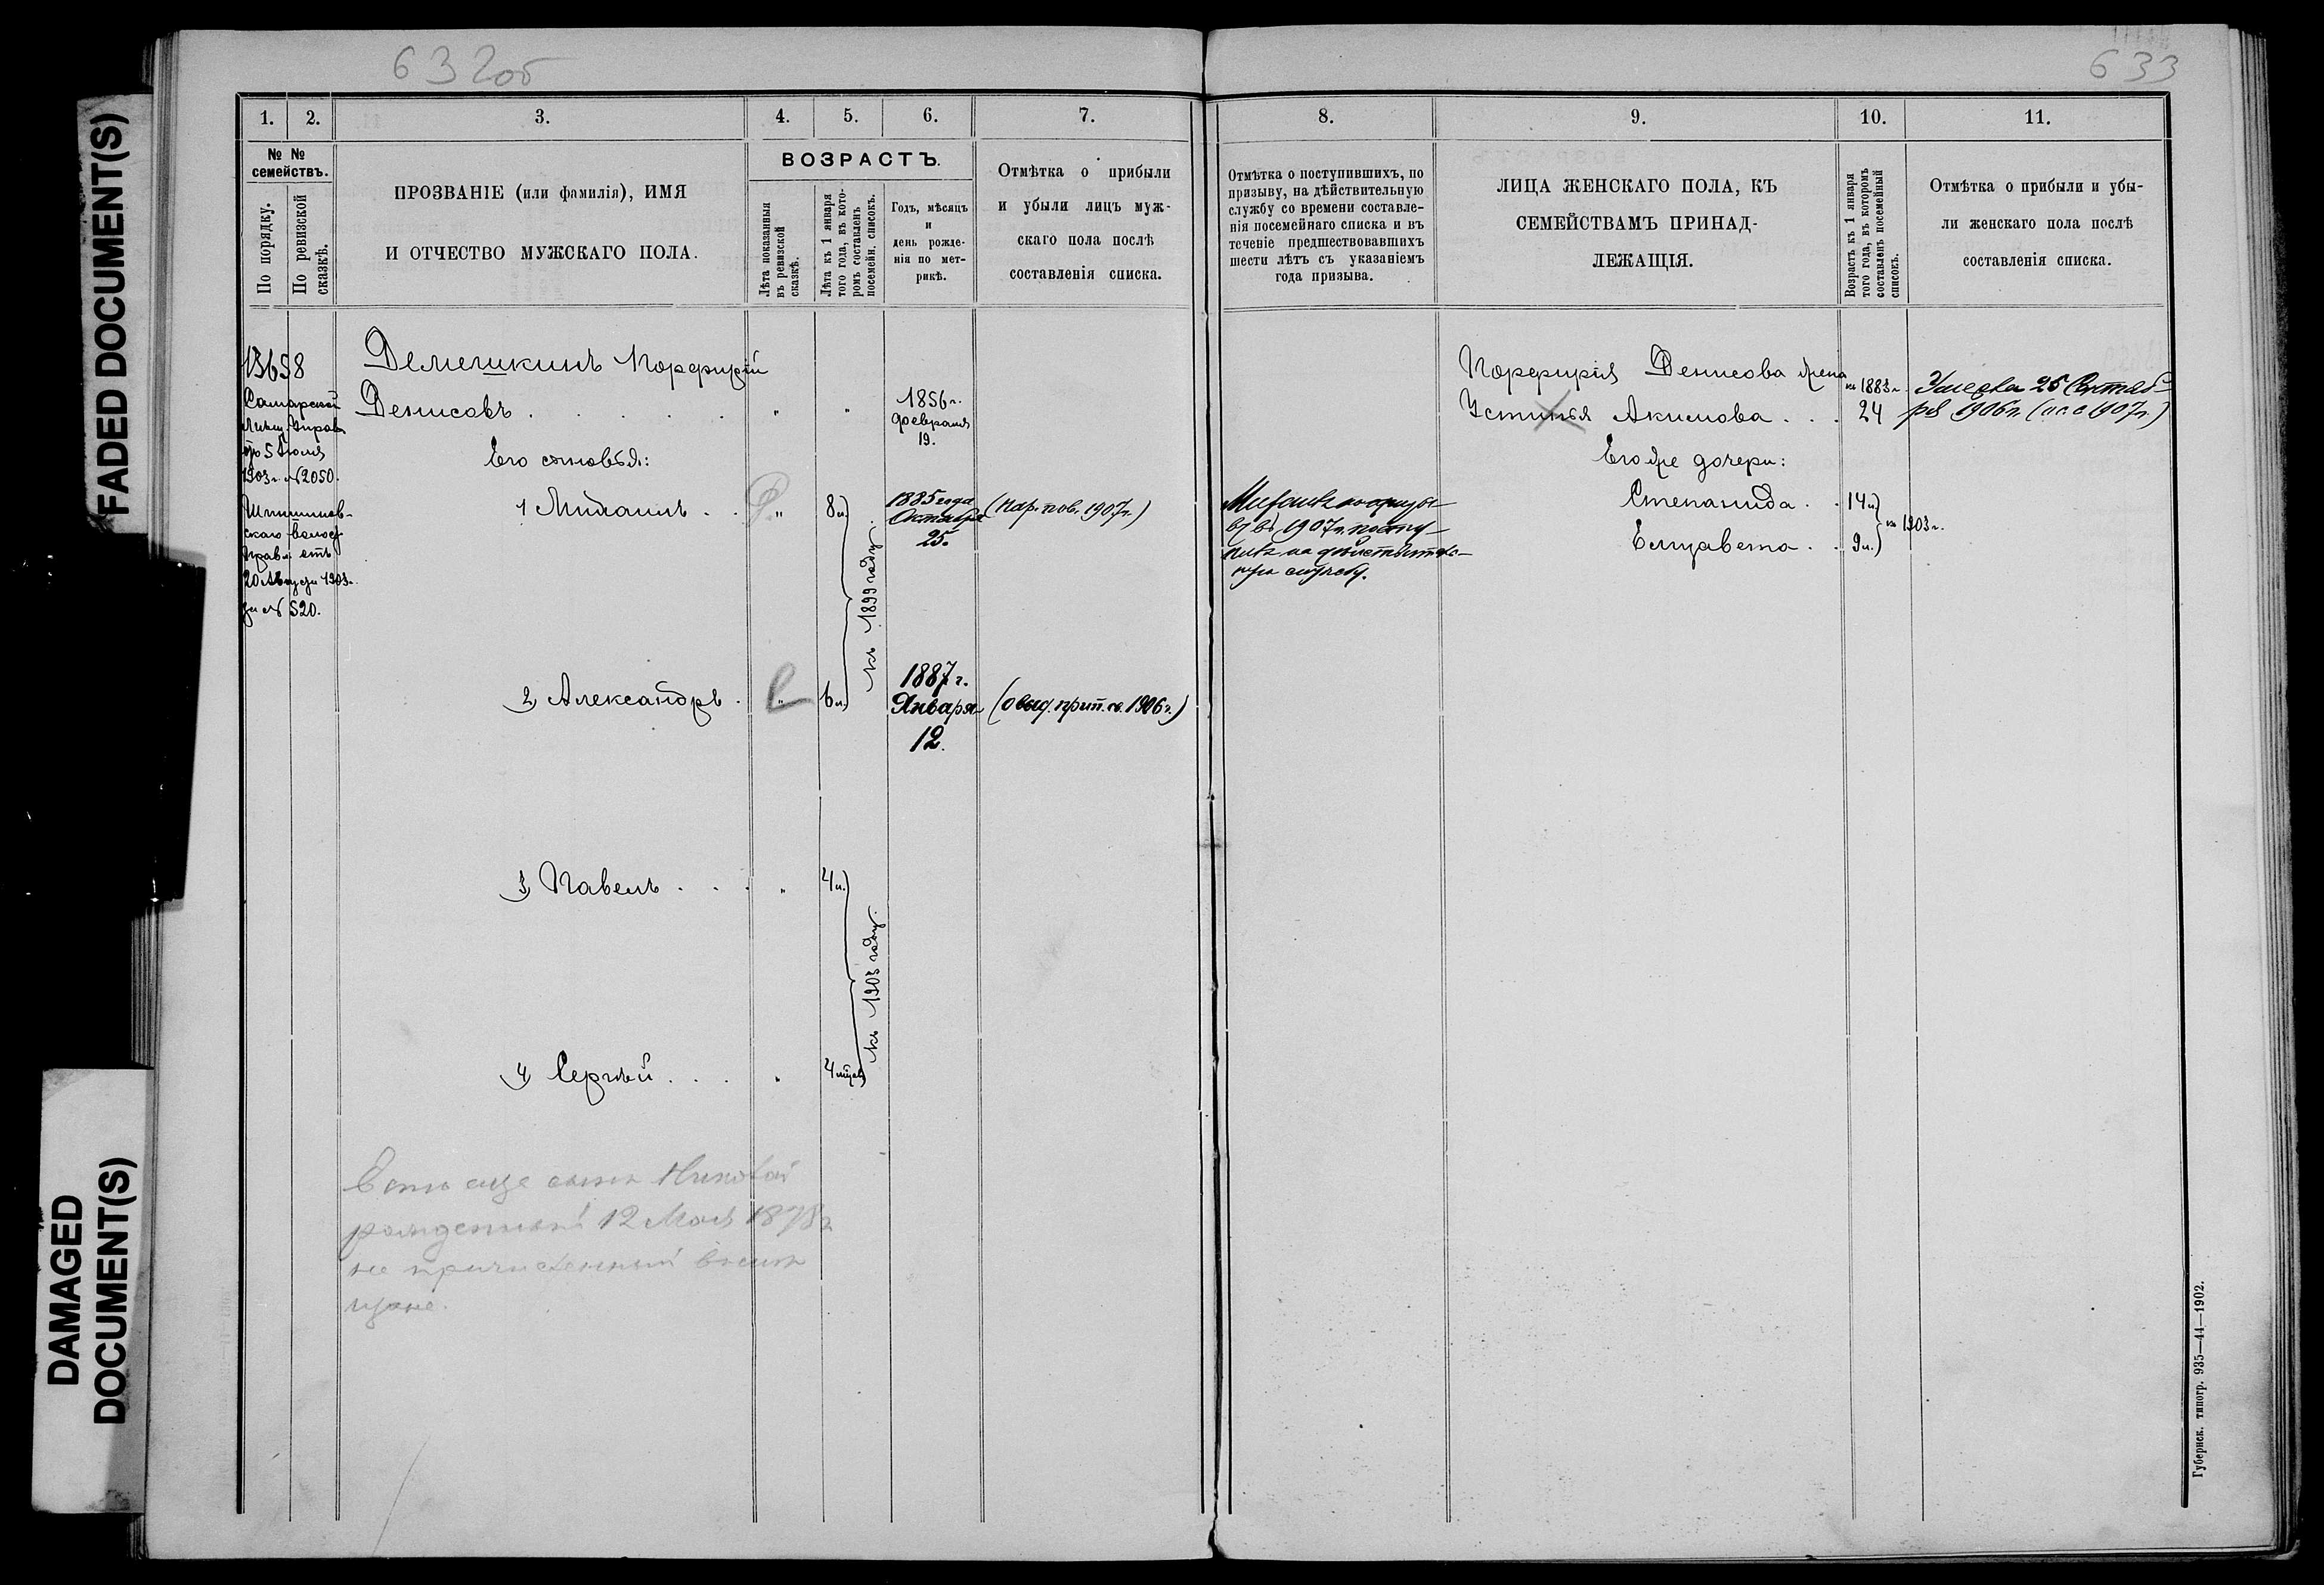 FADED DOCUMENT(S)
DAMAGED
DOCUMENT(S)
632об
1. 2. 3. 4. 5. 6. 7.
№ №
семействъ.
По порядку.
По ревизской
сказкѣ.
ПРОЗВАНІЕ (или фамилія), ИМЯ
И ОТЧЕСТВО МУЖСКАГО ПОЛА.
ВОЗРАСТЪ.
Лѣта показанныя
въ ревизской
сказкѣ.
Лѣта къ 1 января
того года, въ кото-
ромъ составленъ
посемейн. списокъ.
Годъ, мѣсяцъ
и
день рожде-
нія по мет-
рикѣ.
Отмѣтка о прибыли
и убыли лицъ муж-
скаго пола послѣ
составленія списка.
13658
Самарской
Мѣщ. Управы
5 Іюля
1903 г. № 2050.
волост
Правл.
20 Августа 1903 г.
за № 520.
Демешкинъ Порфирій
Денисовъ . . . . . " "
1856 г.
Февраля
19.
Его сыновья:
1 Михаилъ . . " 8 л.
1885 года
Октября
25.
(пар. пов. 1907 г.)
2) Александръ . " 6 л.
къ 1899 году
1887 г.
Января
12.
(о выд. прип. св. 1906 г.)
3) Павелъ . . . " 4 л.
къ 1903 году.
4) Сергѣй . . . " 4 мѣс.
Есть еще сынъ Николай
рожденный 12 Мая 1878 г.
не причисленный въ мѣ
щане.
633
8. 9. 10. 11.
Отмѣтка о поступившихъ, по
призыву, на дѣйствительную
службу со времени составле-
нія посемейнаго списка и въ
теченіе предшествовавшихъ
шести лѣтъ съ указаніемъ
года призыва.
ЛИЦА ЖЕНСКАГО ПОЛА, КЪ
СЕМЕЙСТВАМЪ ПРИНАД-
ЛЕЖАЩІЯ.
Возрастъ къ 1 января
того года, въ которомъ
составленъ посемейный
списокъ.
Отмѣтка о прибыли и убы-
ли женскаго пола послѣ
составленія списка.
Порфирія Денисова жена
Устинья Акимова . . .
къ 1883 г.
24
Умерла 25 Сентяб-
ря 1906 г. (п. с. с 1907 г.)
Его же дочери:
Степанида . . 14 л.
Елизавета . . 9 л.
къ 1903 г.
Михаилъ по призы-
ву въ 1907 г. посту-
пилъ на дѣйствитель-
ную службу.
Губернск. типогр. 935—44—1902.